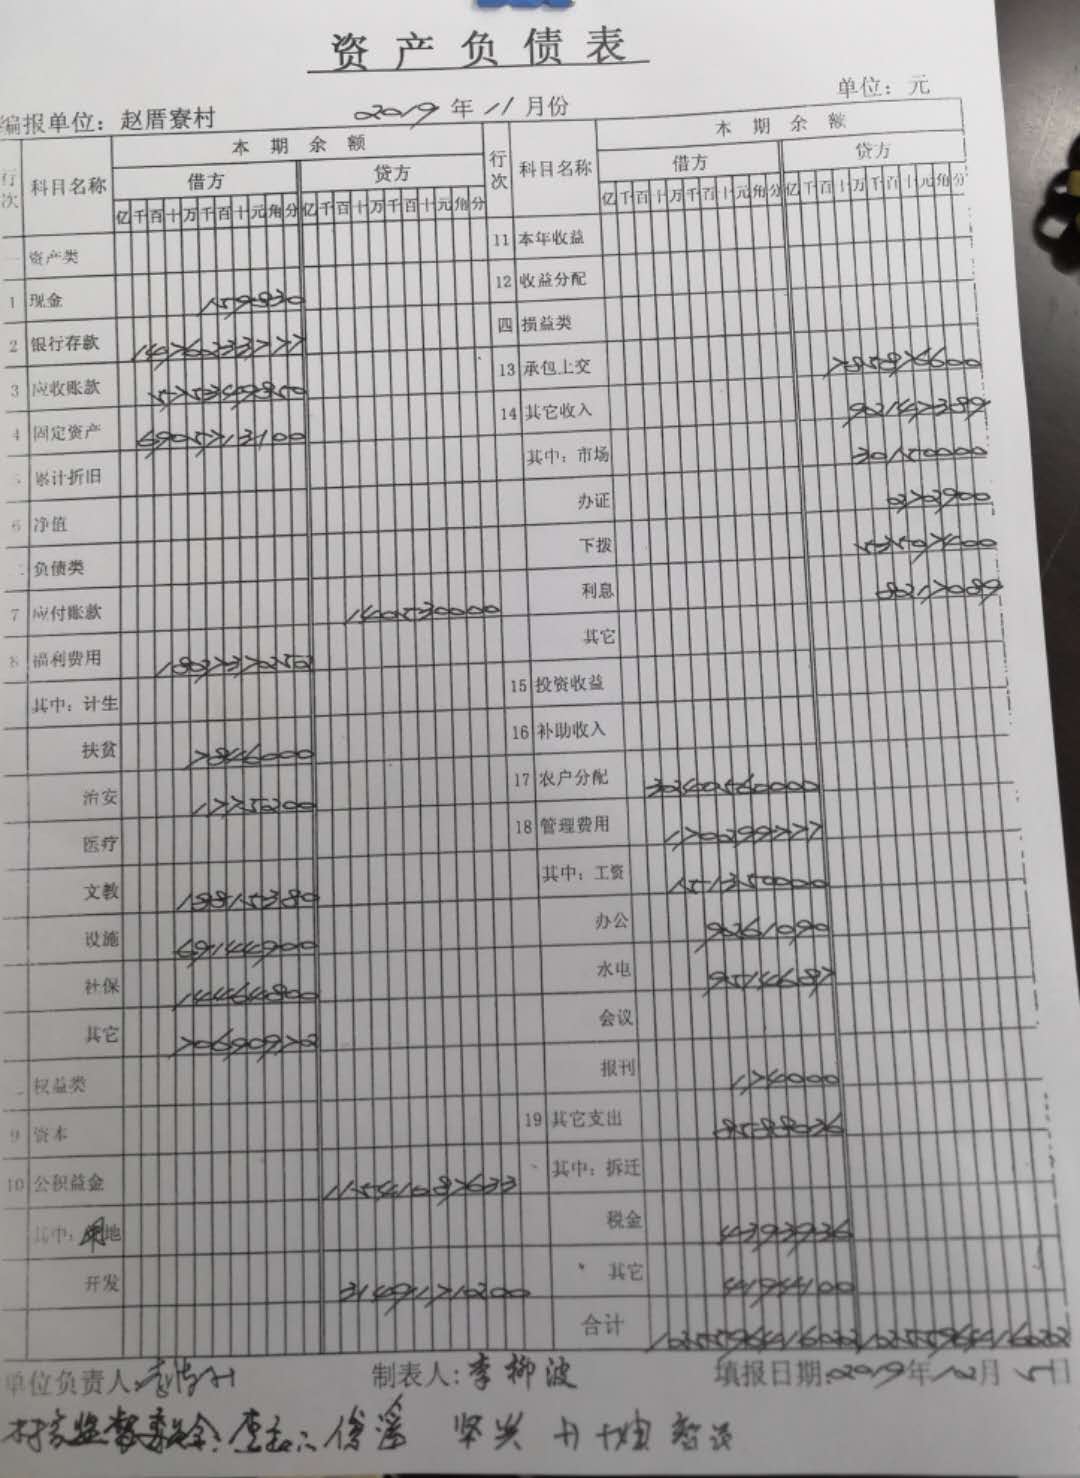 资产负债表
编报单位：赵厝寮村 2019年11月份 单位：元
行次 科目名称 本期余额 行次 科目名称 本期余额
借方 贷方 借方 贷方
亿千百十万千百十元角分 亿千百十万千百十元角分 亿千百十万千百十元角分 亿千百十万千百十元角分
一 资产类
11 本年收益
1 现金
12 收益分配
2 银行存款
四 损益类
3 应收账款
13 承包上交
4 固定资产 6905713100
14 其它收入 902147389
累计折旧
其中：市场 30150000
6 净值
办证
负债类
下拨
7 应付账款 1400530000
利息 80217089
8 福利费用
其它
其中：计生
15 投资收益
扶贫 7846000
16 补助收入
治安 1775200
17 农户分配 30240560000
医疗
18 管理费用 1700299777
文教 19815380
其中：工资 151350000
设施 69144900
办公 90261090
社保 14464800
水电 9514687
其它
会议
权益类
报刊 1740000
9 资本
19 其它支出
10 公积益金
其中：拆迁
其中：用地
税金 4393936
开发 31491171200
其它 4194100
合计 1025596416022 1025596416022
单位负责人： 制表人：李柳波 填报日期：2019年12月5日